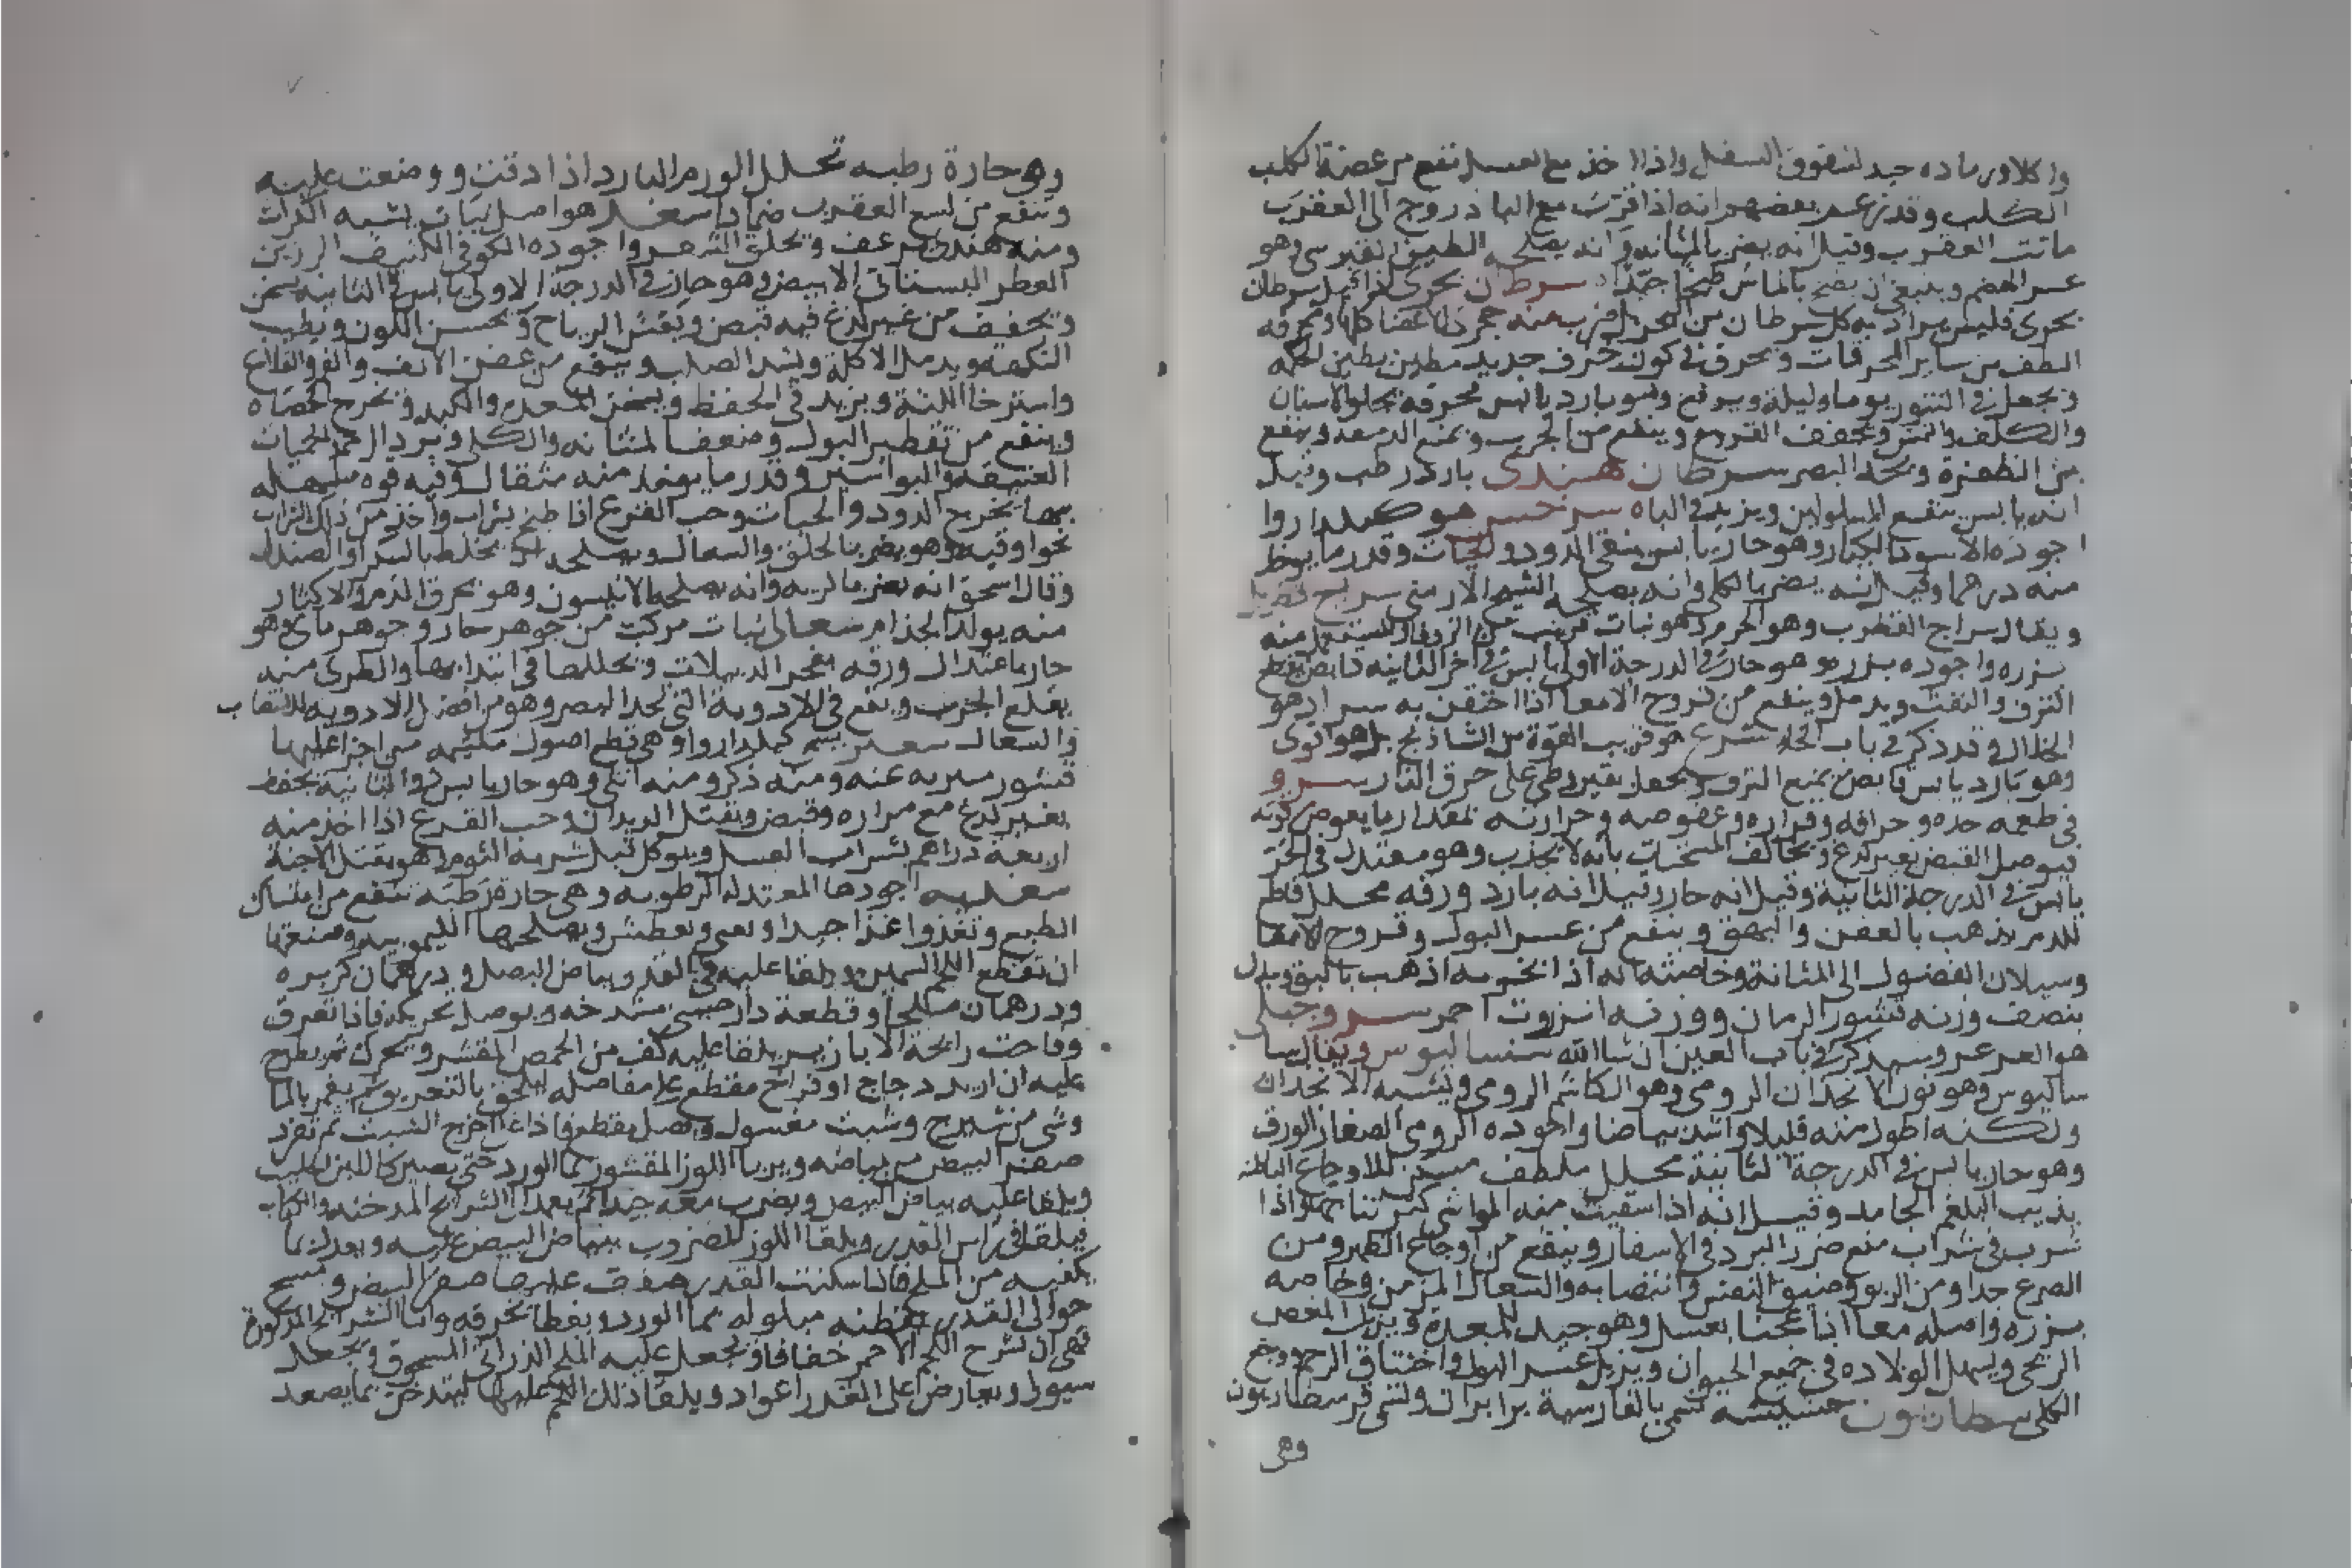 والكلا ورماده جيد لشقوق السفل واذا اخذ مع العسل نفع من عضة الكلب
الكلب وقد زعم بعضهم انه اذا قرب مع الباذروج الى العقرب
ماتت العقرب وقيل انه يضر بالمثانه وانه يصلحه الطين القبرسي وهو
عسر الهضم وينبغي ان يطبخ بالماش طبخا جيدا سرطان بحري اذا قيل سرطان
بحري فليس يراد به كل سرطان من البحر بل ضرب منه حجري الاعضا كلها ومحرقه
الطف من ساير المحرقات ويحرق في كوز خزف جديد مطين بطين الحكمه
ويجعل في التنور يوما وليلة ويرفع وهو بارد يابس محرقه يجلو الاسنان
والكلف والنمش ويجفف القروح وينفع من الجرب ويمنع الدمعه وينفع
من الظفرة ويحد البصر سرطان هندى بارد رطب وقيل
انه يابس ينفع المسلولين ويزيد في الباه سرخس هو كيلداروا
اجوده الاسود الكبار وهو حار يابس ينقي الدود والحيات وقدر ما يوخذ
منه درهما وقيل انه يضر بالكلى وانه يصلحه الشيح الارمني سراج القطرب
ويقال سراج القطرب وهو نبات قريب من الزوفا والمستعمل منه
بزره واجوده بزره وهو حار في الدرجة الاولى يابس في اخر الثانيه قابض يقطع
النزف والنفث ويدمل وينفع من قروح الامعا اذا احتقن به سراد هو
الخلال وقد ذكر في باب الخا شرع هو قريب القوة من الشاذنج بل هو اقوى
وهو بارد يابس قابض يمنع النزف ويجعل بقيروطي على حرق النار سرو
في طعمه حده وحرافه ومراره وعفوصه وحرارته بمقدار ما يغوص قوته
فيوصل القبض بغير لذع ويخالف المسخنات بانه لا يجذب وهو معتدل في الحر
يابس في الدرجة الثانية وقيل انه حار وقيل انه بارد ورقه محلل قاطع
للدم يذهب بالعفن والبهق وينفع من عسر البول وقروح الامعا
وسيلان الفضول الى المثانة وخاصيته انه اذا بخر به اذهب بالبق وبدله
بنصف وزنه قشور الرمان ووزنه انزروت احمر سرو جبلي
هو العرعر وسيذكر في باب العين ان شا الله سساليوس ويقال
ساليوس وهو نون الانجدان الرومي وهو الكاشم الرومي ويشبه الانجدان
ولكنه اطول منه قليلا واشد بياضا واجوده الرومي الصغار الورق
وهو حار يابس في الدرجة الثانية محلل ملطف مسكن للاوجاع الباطنه
يذيب البلغم الجامد وقيل انه اذا سقيت منه المواشي كثر نتاجها واذا
شرب في شراب منع ضرر البرد في الاسفار وينفع من اوجاع الظهر ومن
الصرع جدا ومن الربو وضيق النفس وانتصابه والسعال المزمن وخاصه
بزره واصله معا اذا عجنا بعسل وهو جيد للمعدة ويزيل المغص
الريحي ويسهل الولاده في جميع الحيوان ويزيل عسر البول واختناق الرحم ووجع
الكلى سطاريون حشيشه تسمى بالفارسية برابران وتسمى
وهى
وهي حارة رطبه تحلل الورم البارد اذا دقت ووضعت عليه
وتنفع من لسع العقرب ضمادا سعد هو اصل نبات يشبه الكراث
ومنه هندي يرعف ويحلق الشعر واجوده الكوفي الكثيف الرزين
العطر البستاني الابيض وهو حار في الدرجة الاولى يابس في الثانيه يسخن
ويجفف من غير لذع فيه قبض ويفش الرياح ويحسن اللون ويطيب
النكهة ويدمل الاكلة ويشد الصلب وينفع من عفن الانف والفم والقلاع
واسترخا اللثة ويزيد في الحفظ ويسخن المعده والكبد ويخرج الحصاه
وينفع من تقطير البول وضعف المثانه والكلى وبرد الرحم والحميات
العتيقه والبواسير وقدر ما يوخذ منه مثقال وفيه قوه مسهله
بها يخرج الدود والحيات وحب القرع اذا طبخ بشراب واخذ من ذلك الشراب
نحو اوقيه وهو يضر بالحلق والسعال ويصلحه ان يخلط بالسكر او الصندل
وقال اسحق انه يضر بالريه وانه يصلحه الانيسون وهو يحرق الدم والاكثار
منه يولد الجذام سعالى نبات مركب من جوهر حار وجوهر مائي وهو
حار باعتدال ورقه يفجر الدبيلات ويحللها في ابتدايها والطري منه
يقلع الجرب ويقع في الادوية التي تحد البصر وهو من افضل الادويه للانتصاب
والسعال سعد يسمى كيلداروا وهي قطع اصول عليها
قشور ومنه ذكر ومنه انثى وهو حار يابس في الثانية يجفف
بغير لذع مع مراره وقبض ويقتل الديدان وحب القرع اذا اخذ منه
اربعه دراهم بشراب العسل ويوكل قبل شربه الثوم وهو يقتل الاجنة
سعديه اجودها المعتدله الرطوبه وهي حارة رطبة تنفع من امساك
الطبع وتغذوا غذا جيدا وتعطش ويصلحها الليمو وصنعتها
ان تقطع اللحم السمين ويلقا عليه في القدر وبياض البصل ودرهمان كزبره
ودرهمان ملحا وقطعة دارصيني ويوصل تحريكه فاذا تعرق
وفاحت رايحة الابازير يلقا عليه كف من الحمص المقشر ويحرك ثم يطرح
عليه ان اريد دجاج او فراخ مقطع على مفاصله ليلحق بالتعريق ثم يغمر بالما
وشي من شيرج وشبت مغسول وبصل يقطع فاذا غلا اخرج الشبت ثم تفرد
صفر البيض من بياضه ويربا اللوز المقشور بما الورد حتى يصير كاللبن الحليب
ويلقا عليه بياض البيض ويضرب معه جيدا ثم يعدل الشرايح المدخنه والكباب
فيلقا في راس القدر ويلقا اللوز المضروب ببياض البيض عليه ويعدل بما
يكفيه من الملح فاذا سكنت القدر صفت عليها صفر البيض ومسح
حوالي القدر بقطنه مبلوله بما الورد ويغطا بخرقه واما الشرايح المذكورة
فهي ان تشرح اللحم الاحمر خفافا ويجعل عليه الملح الذراني المسحوق ويجعل
سيورا ويعارض على القدر اعواد ويلقا ذلك اللحم عليها ليتدخن بما يصعد